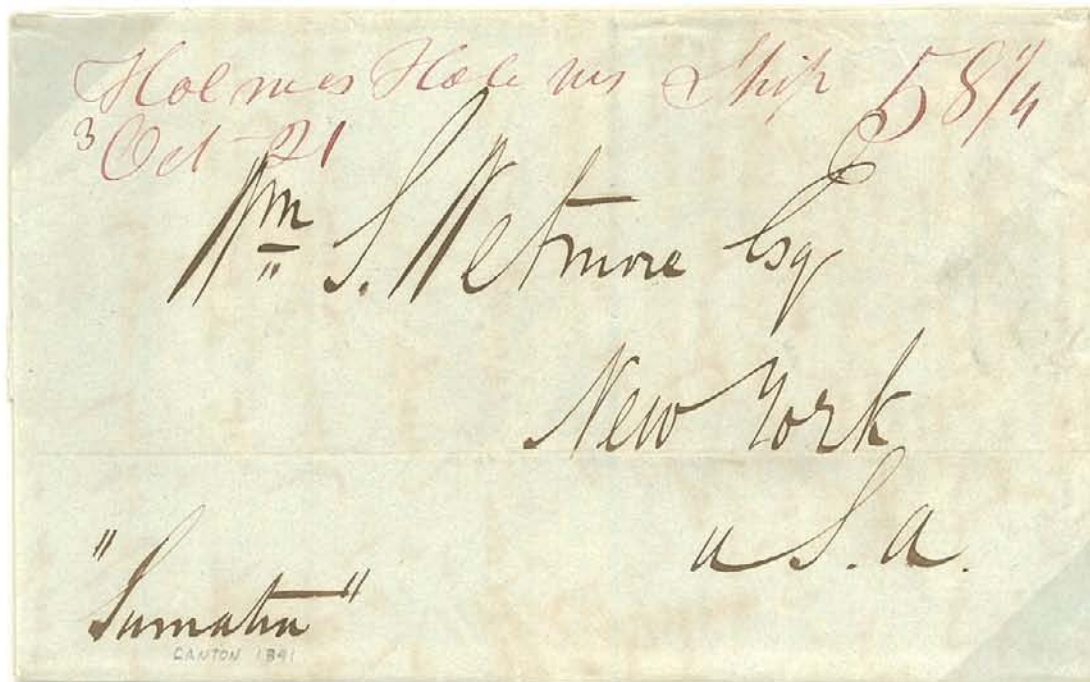 Holmes Hole ms Ship 58 1/4
3 Oct 21
Wm S. Wetmore Esq
New York
U.S.A.
"Sumatra"
CANTON 1841